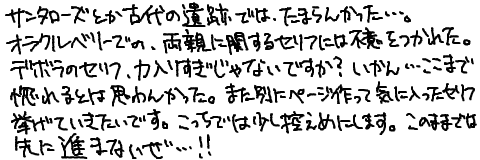 サンタローズとか古代の遺跡では、たまらんかった…。
オラクルベリーでの、両親に関するセリフには不意をつかれた。
デボラのセリフ、力入りすぎじゃないですか？いかん…ここまで
惚れるとは思わんかった。また別にページ作って気に入ったセリフ
挙げていきたいです。こっちでは少し控えめにします。このままでは
先に進まないぜ…!!